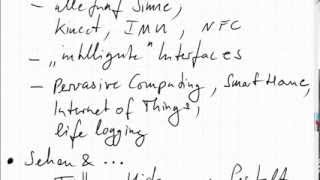 - alle fünf Sinne,
Kinect, IMU, NFC
- "intelligente" Interfaces
- Pervasive Computing, Smart Home,
Internet of Things,
life logging
• Sehen & ...